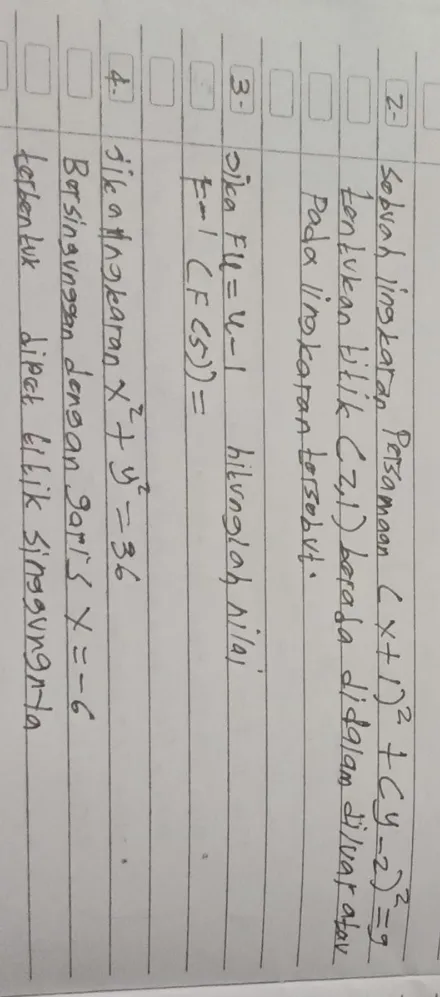 2. Sebuah lingkaran Persamaan (x+1)² + (y-2)² = 9
tentukan titik (2,1) berada didalam diluar atau
Pada lingkaran tersebut.
3. Jika F4 = 4-1 hitunglah nilai
F-1 (F(5)) =
4. Jika lingkaran x² + y² = 36
Bersinggunggan dengan garis x = -6
terbentuk dipek titik singgungnya